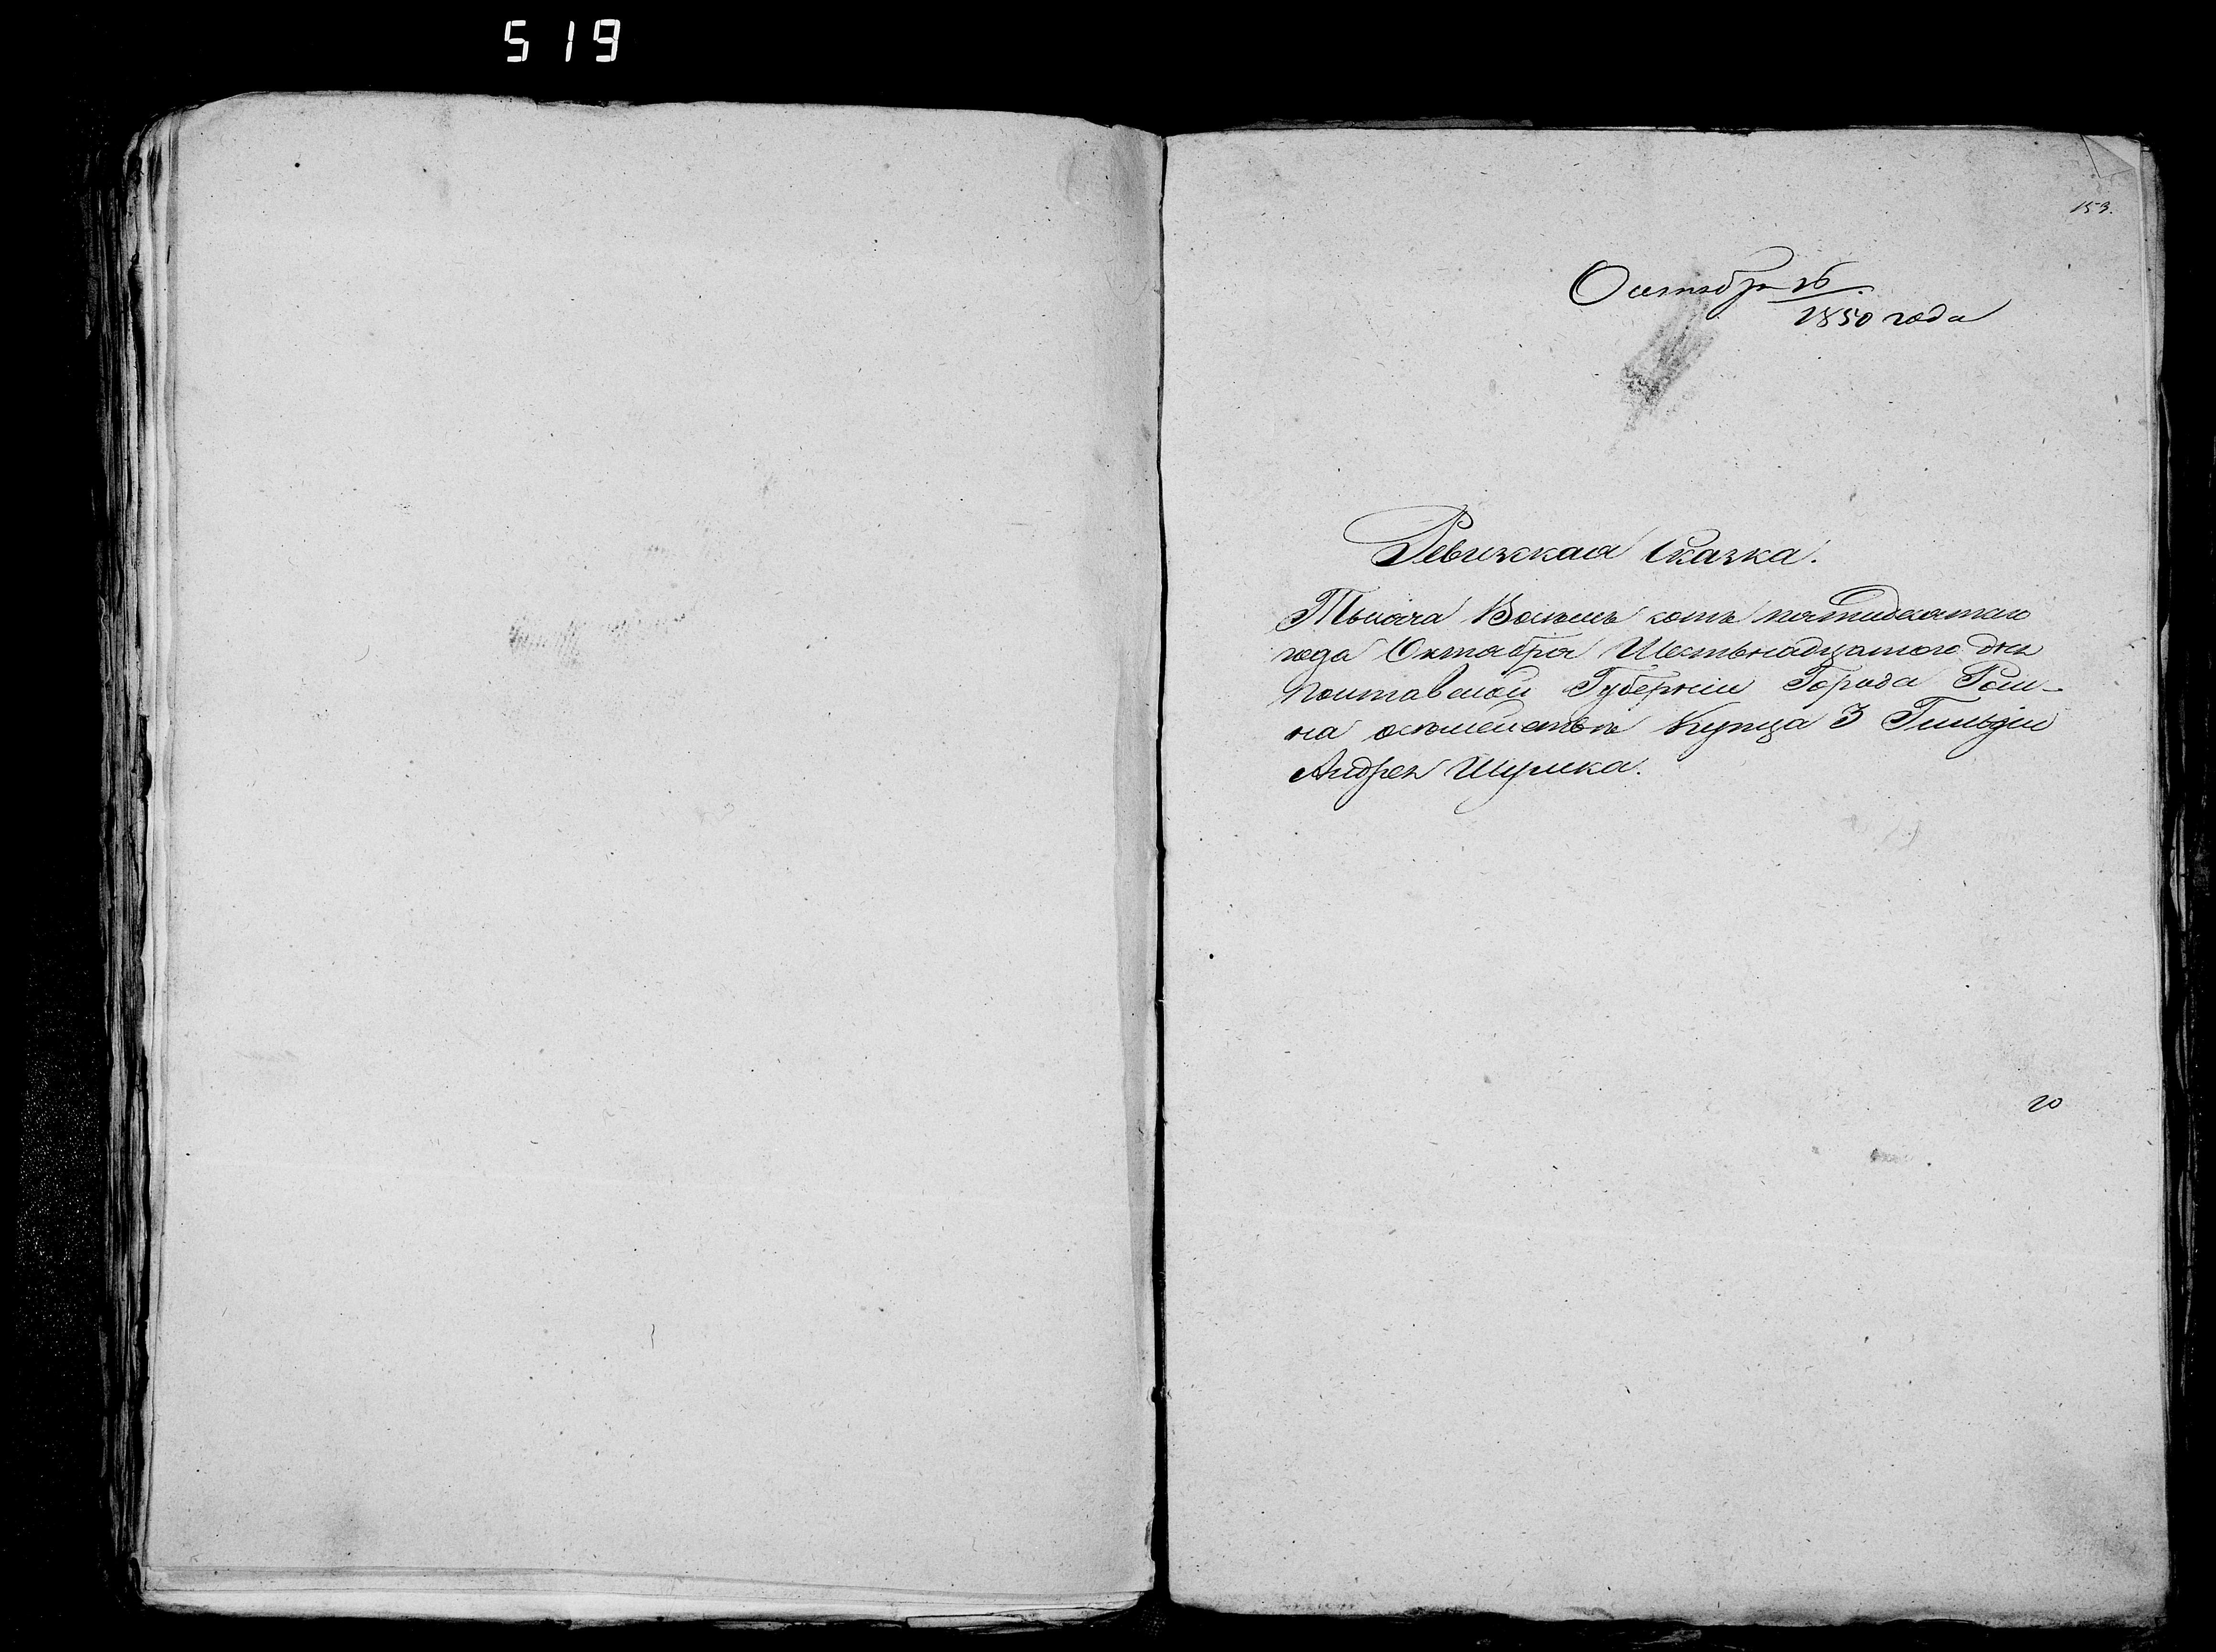 519
153.
Октября 16
1850 года
Ревизская Сказка.
Тысяча Восемь сотъ пятидесятаго
года Октября Шестьнадцатого дня
Полтавской Губернiи Города Ром-
на осемействѣ Купца 3 Гильдiи
Андрея Шумка.
20